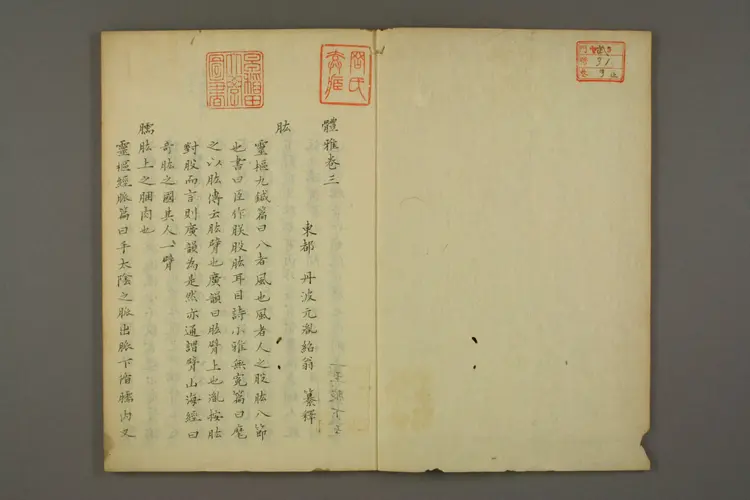 體雅卷三
東都 丹波元胤紹翁 纂釋
肱
靈樞九鍼篇曰八者風也風者人之股肱八節
也書曰臣作朕股肱耳目詩小雅無羊篇曰麾
之以肱傳云肱臂也廣韻曰肱臂上也胤按肱
對股而言則廣韻為是然亦通謂臂山海經曰
奇肱之國其人一臂
臑
肱上之膕肉也
靈樞經脈篇曰手太陰之脈出腋下循臑內又
早稻田大學圖書